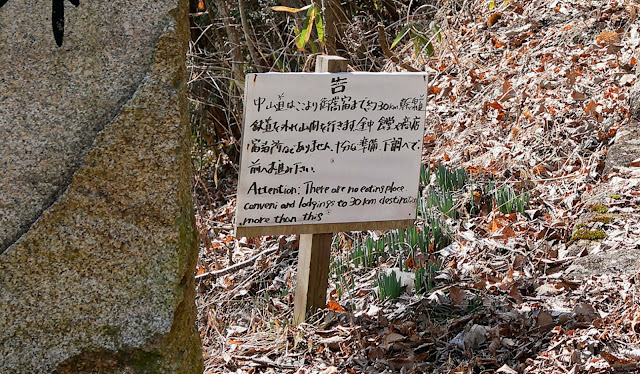 告
中山道はここより御嵩宿まで約30km 幹線
鉄道を外れ山間を行きます。途中 食堂や商店
宿泊所などありません。十分な準備、下調べで、
前へお進み下さい。
Attention: There are no eating place,
conveni and lodgings to 30 km destination
more than this